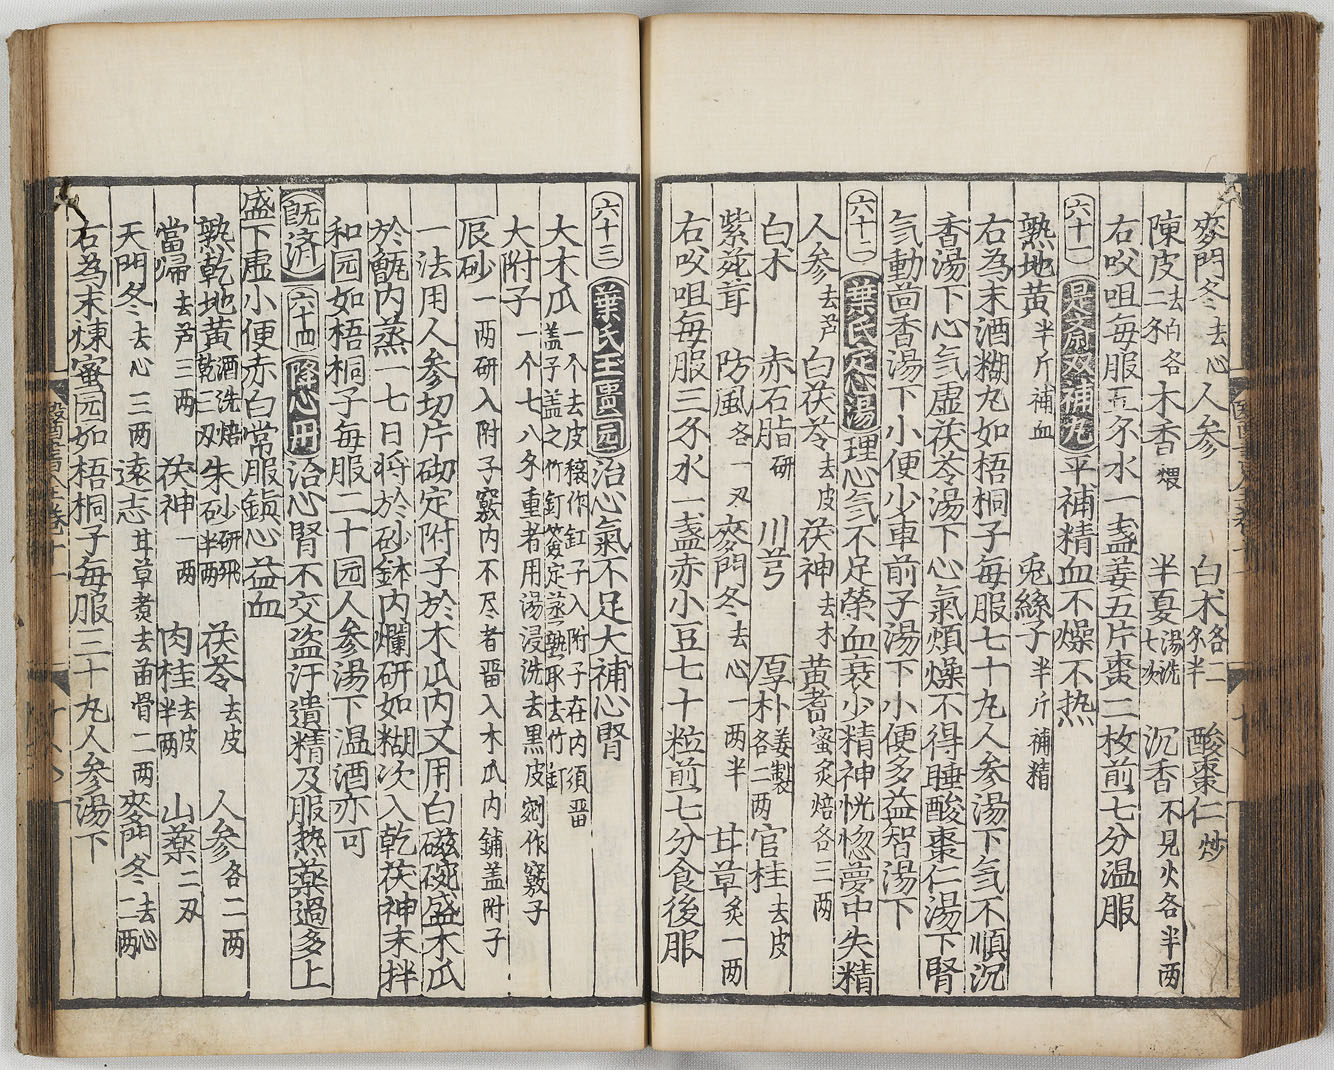 麥門冬去心 人参 白术各二分半 酸棗仁炒
陳皮去白二分 各木香煨 半夏湯洗七次 沉香不見火各半两
右㕮咀每服五分水一盏姜五片棗二枚煎七分温服
六十一 是斎双補丸 平補精血不燥不热
熟地黄半斤補血 兎絲子半斤補精
右為末酒糊丸如梧桐子每服七十丸人参湯下气不順沉
香湯下心气虚茯苓湯下心氣煩燥不得睡酸棗仁湯下腎
气動茴香湯下小便少車前子湯下小便多益智湯下
六十二 葉氏定心湯 理心气不足榮血衰少精神恍惚夢中失精
人参去芦 白茯苓去皮 茯神去木 黄耆蜜炙焙各三两
白术 赤石脂研 川芎 厚朴姜製各二两 官桂去皮
紫菀茸 防風各一刄 麥門冬去心一两半 甘草炙一两
右㕮咀每服三分水一盏赤小豆七十粒煎七分食後服
六十三 葉氏玉壐园 治心氣不足大補心腎
大木瓜一个去皮穰作缸子入附子在内須畱盖子盖之竹釘簽定蒸熟取去竹釘
大附子一个七八分重者用湯浸洗去黒皮剜作竅子
辰砂一两研入附子竅内不尽者畱入木瓜内鋪盖附子
一法用人参切片砌定附子於木瓜内又用白磁碗盛木瓜
於甑内蒸一七日将於砂鉢内爛研如糊次入乾茯神末拌
和园如梧桐子每服二十园人参湯下温酒亦可
既済 六十四 降心丹 治心腎不交盗汗遺精及服热藥過多上
盛下虚小便赤白常服鎮心益血
熟乾地黄酒洗焙乾三刄 朱砂研飛半两 茯苓去皮 人参各二两
當归去芦三两 茯神一两 肉桂去皮半两 山藥二刄
天門冬去心三两 遠志甘草煮去苗骨二两 麥門冬去心二两
右為末煉蜜园如梧桐子每服三十丸人参湯下